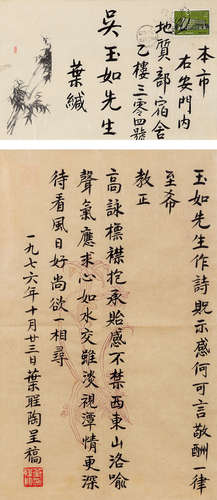 本市
右安門内
地質部宿舍
乙樓三零四號
吳玉如先生
葉緘
玉如先生作詩貺示感何可言敬酬一律
至希
教正
高詠標襟抱承貽感不禁西東山洛喻
聲氣應求心如水交雖淡視潭情更深
待看風日好尚欲一相尋
一九七六年十月廿三日葉聖陶呈稿